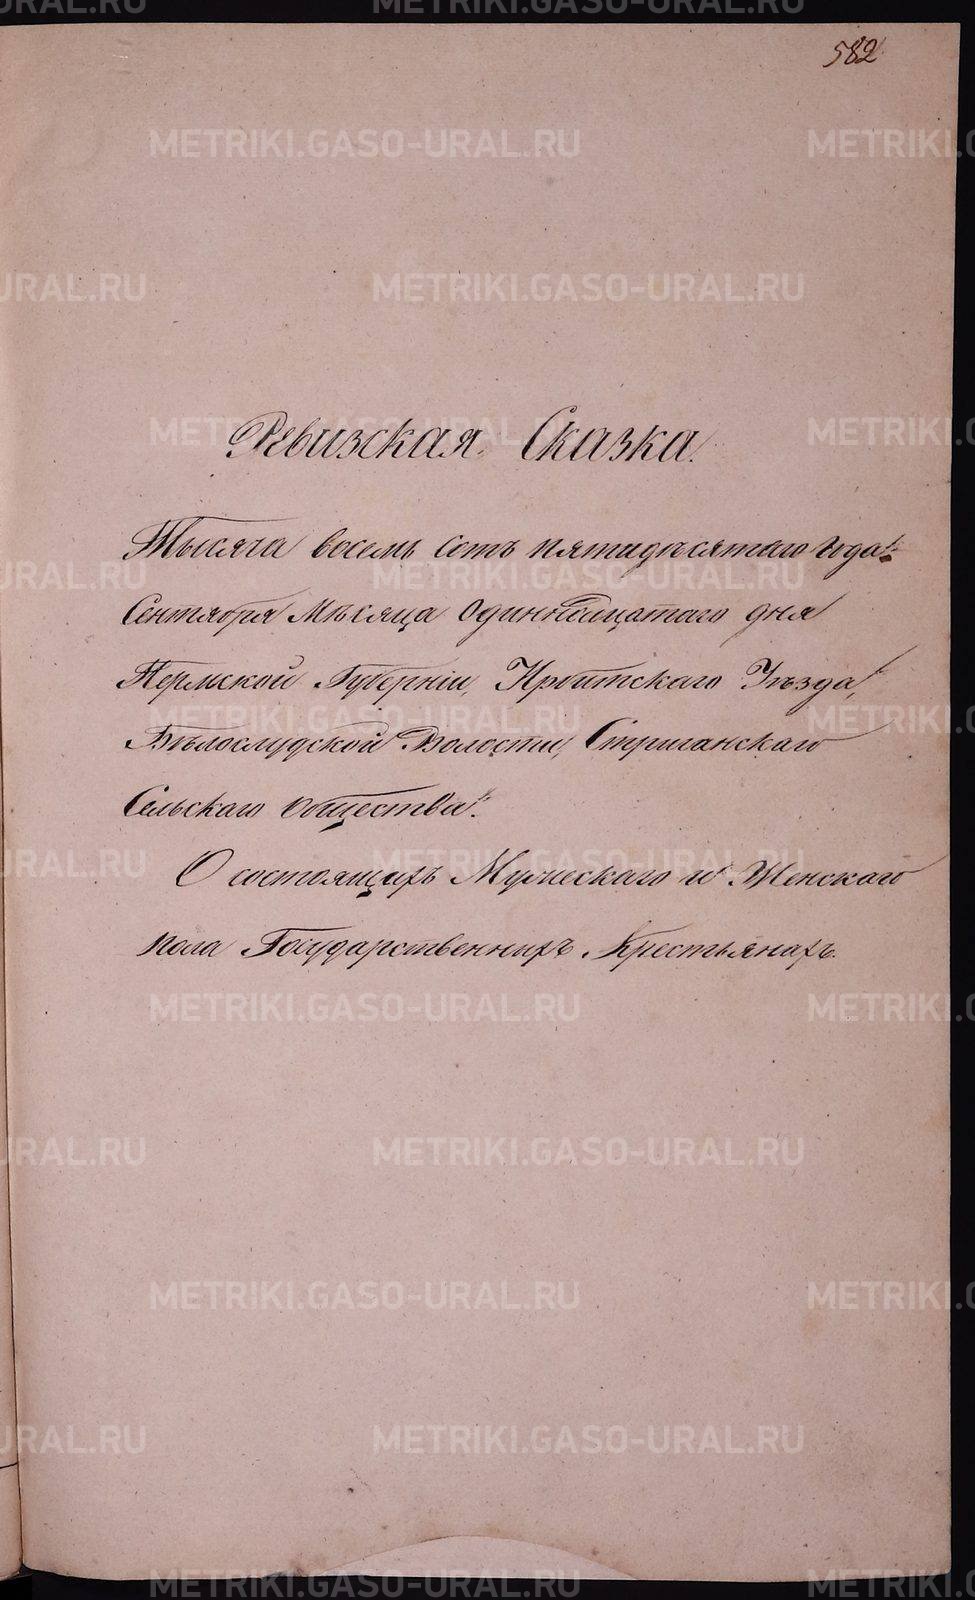 582
Ревизская Сказка.
Тысяча восемь сотъ пятидѣсятаго года
Сентября Мѣсяца Одиннадцатаго дня
Пермской Губерніи, Ирбитскаго Уѣзда,
Бѣлослудской Волости, Стриганскаго
Сельскаго Общества:
О состоящихъ Мужескаго и Женскаго
пола Государственныхъ Крестьянахъ.
METRIKI.GASO-URAL.RU